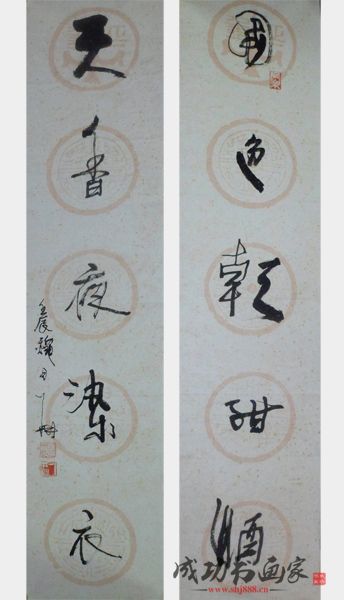 國色朝酣酒
天香夜染衣
壬辰
成功书画家
www.shj888.cn